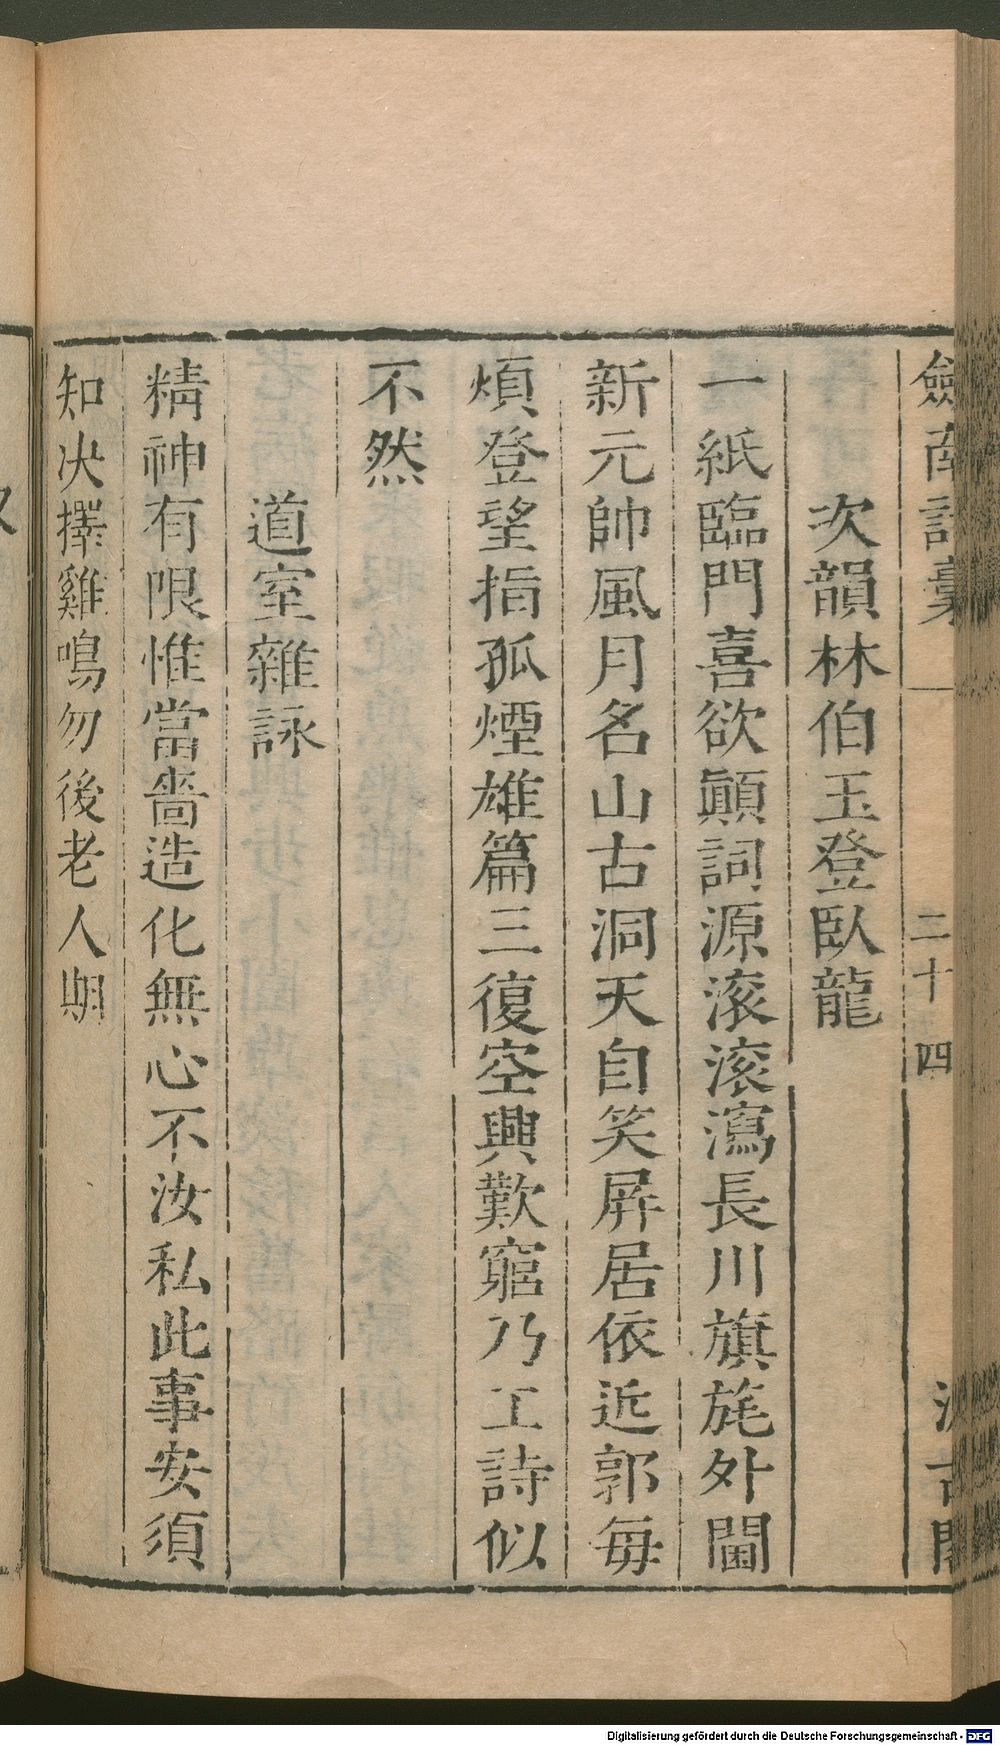 劒南詩稾
二十四
汲古閣
次韻林伯玉登臥龍
一紙臨門喜欲顚詞源滚滚瀉長川旗旄外閫
新元帥風月名山古洞天自笑屛居依近郭每
煩登望指孤煙雄篇三復空興歎窮乃工詩似
不然
道室雜詠
精神有限惟當嗇造化無心不汝私此事安須
知决擇雞鳴勿後老人期
Digitalisierung gefördert durch die Deutsche Forschungsgemeinschaft - DFG